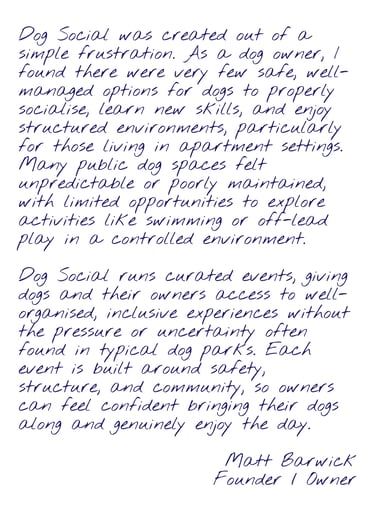 Dog Social was created out of a
simple frustration. As a dog owner, I
found there were very few safe, well-
managed options for dogs to properly
socialise, learn new skills, and enjoy
structured environments, particularly
for those living in apartment settings.
Many public dog spaces felt
unpredictable or poorly maintained,
with limited opportunities to explore
activities like swimming or off-lead
play in a controlled environment.

Dog Social runs curated events, giving
dogs and their owners access to well-
organised, inclusive experiences without
the pressure or uncertainty often
found in typical dog parks. Each
event is built around safety,
structure, and community, so owners
can feel confident bringing their dogs
along and genuinely enjoy the day.

Matt Barwick
Founder | Owner